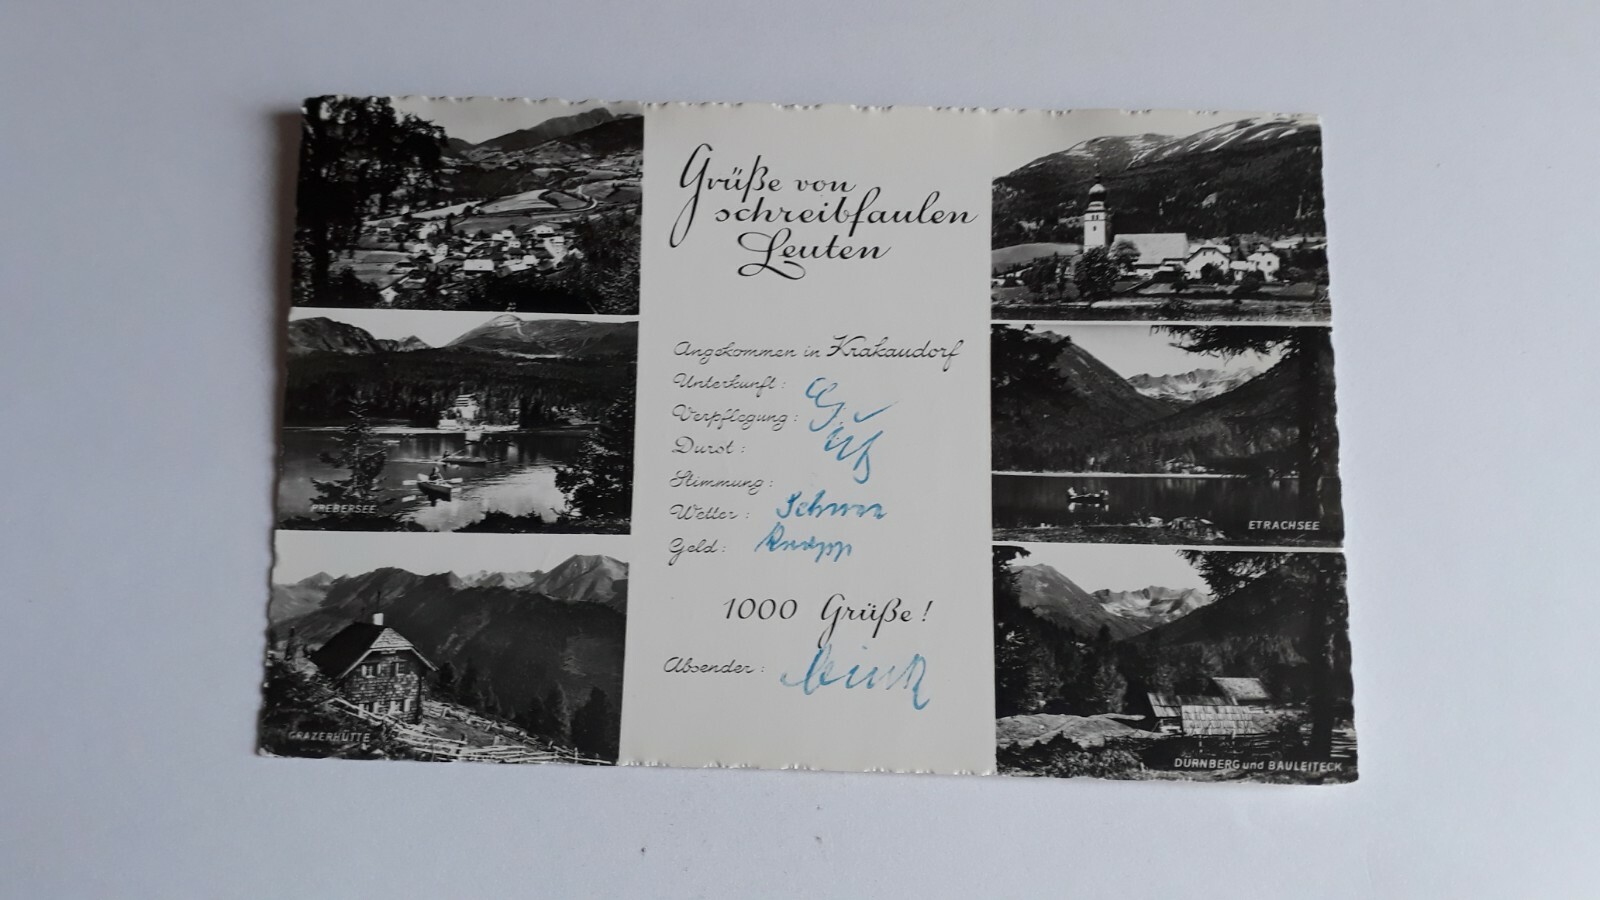 Grüße von
schreibfaulen
Leuten
Angekommen in Krakaudorf
Unterkunft:
Verpflegung:
Durst:
Stimmung:
Wetter:
Geld: Knapp
1000 Grüße!
Absender:
PREBERSEE
GRAZERHÜTTE
ETRACHSEE
DÜRNBERG und BAULEITECK